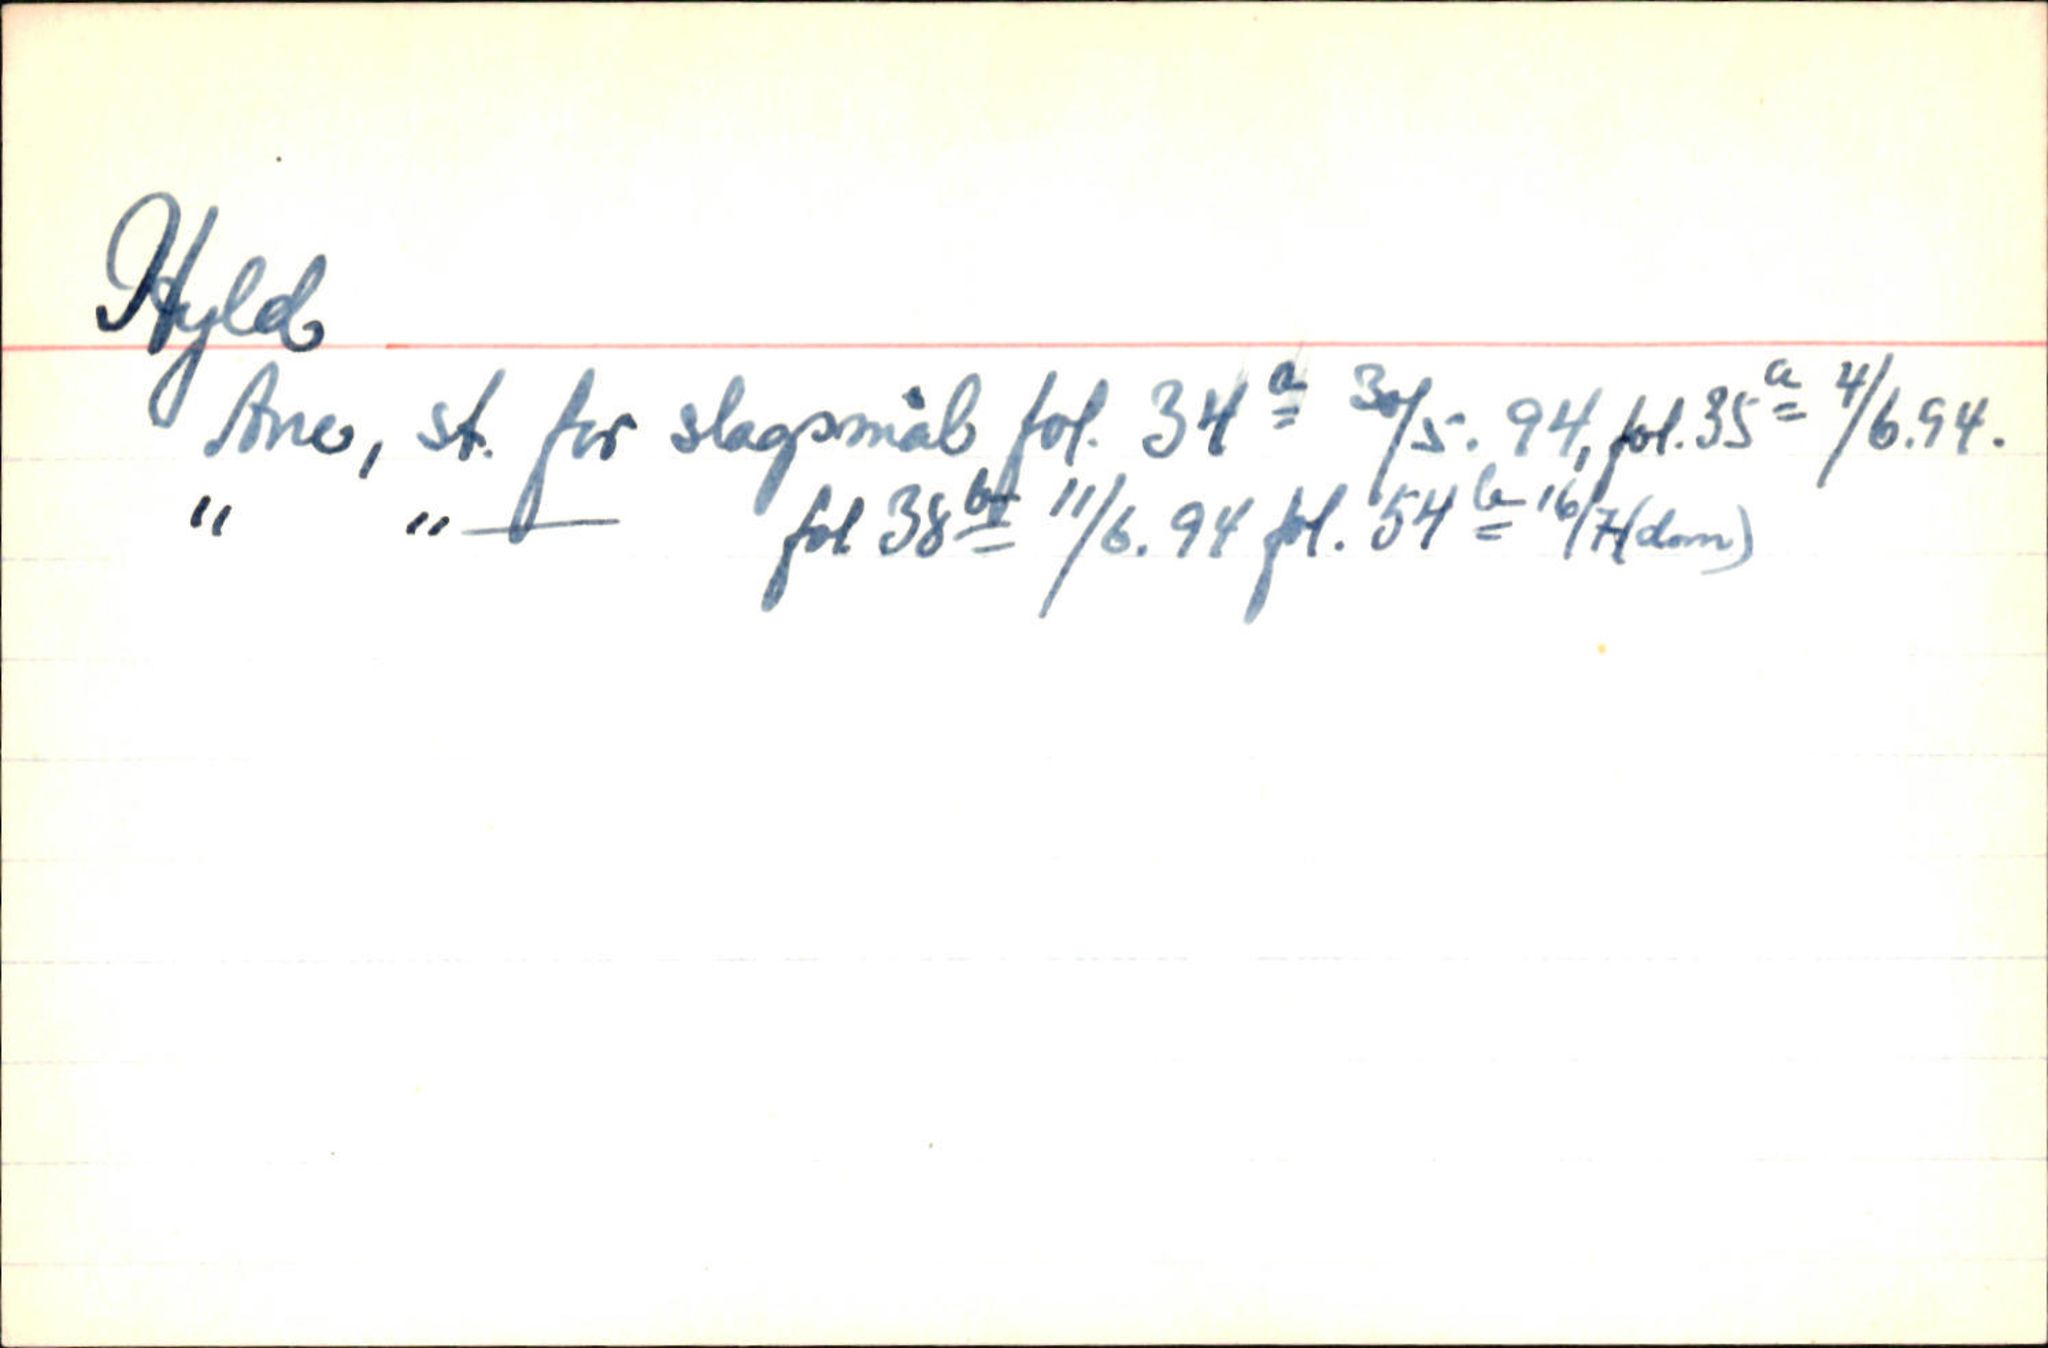 Hyld
Ane, st. for slagsmål fol. 34a 30/5. 94, fol. 35a 4/6.94.
" " — fol 38b 11/6. 94 fol. 54b 16/7 (dom)